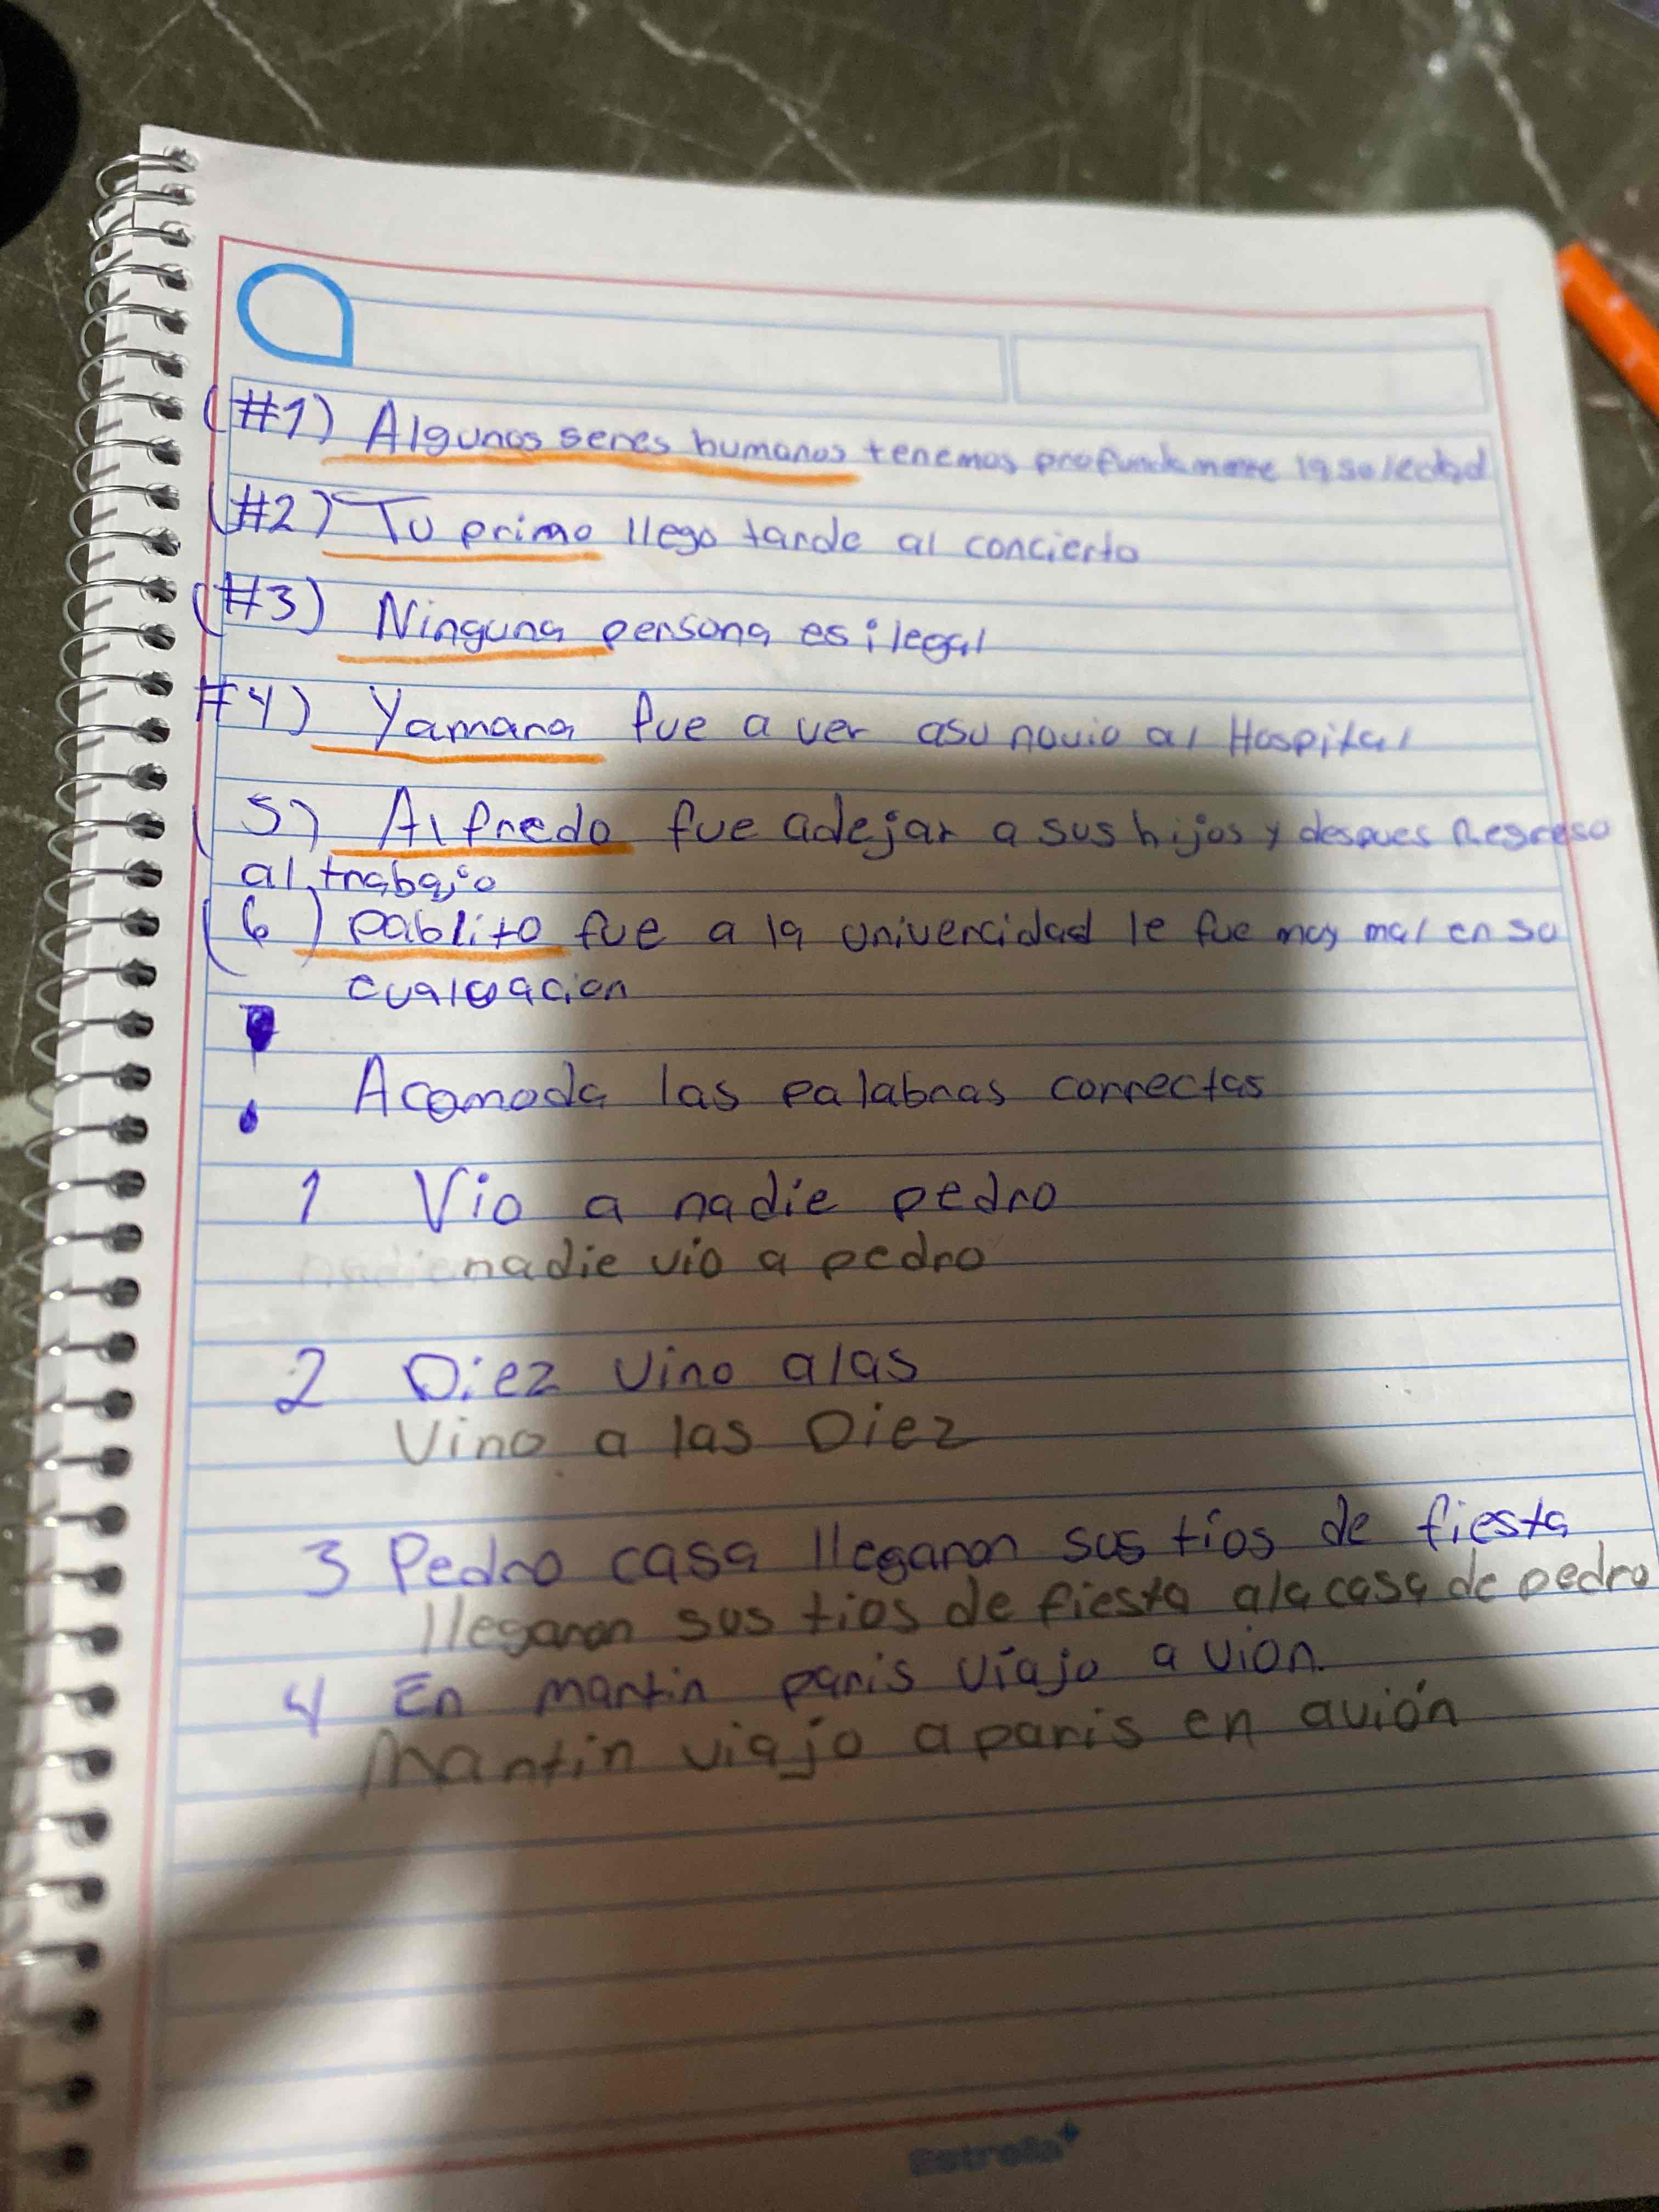 (#1) Algunos seres humanos tenemos profundamente la soledad
(#2) Tu primo llego tarde al concierto
(#3) Ninguna persona es ilegal
#4) Yamara fue a ver asu novio al Hospital
(5) Alfredo fue adejar a sus hijos y despues Regreso
al trabajo
(6) pablito fue a la univercidad le fue muy mal en su
evaluacion
Acomoda las palabras correctas
1 Vio a nadie pedro
nadie vio a pedro
2 Diez vino alas
Vino a las Diez
3 Pedro casa llegaron sus tíos de fiesta
llegaron sus tios de fiesta ala casa de pedro
4 En martin paris viajo avion.
Martin viajo a paris en avión
Estrella